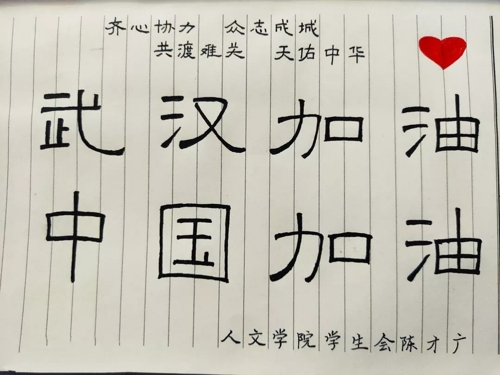 齐心协力 众志成城
共渡难关 天佑中华
武汉加油
中国加油
人文学院学生会陈才广